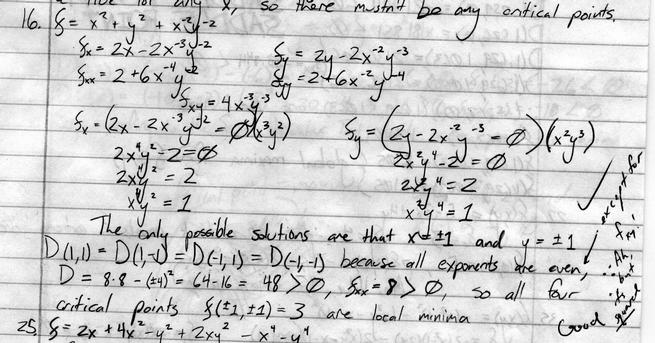 so there mustn't be any critical points.
16. f = x² + y² + x⁻²y⁻²
fx = 2x - 2x⁻³y⁻² fy = 2y - 2x⁻²y⁻³
fxx = 2 + 6x⁻⁴y⁻² fyy = 2 + 6x⁻²y⁻⁴
fxy = 4x⁻³y⁻³
fx = (2x - 2x⁻³y⁻² = 0)(x³y²) fy = (2y - 2x⁻²y⁻³ = 0)(x²y³)
2x⁴y² - 2 = 0 2x²y⁴ - 2 = 0
2x⁴y² = 2 2x²y⁴ = 2
x⁴y² = 1 x²y⁴ = 1
The only possible solutions are that x = ±1 and y = ±1
D(1,1) = D(1,-1) = D(-1,1) = D(-1,-1) because all exponents are even,
D = 8·8 - (±4)² = 64 - 16 = 48 > 0, fxx = 8 > 0, so all four
critical points f(±1,±1) = 3 are local minima
except for
Ah,
but
is
Good
25. f = 2x + 4x² - y² + 2xy² - x⁴ - y⁴